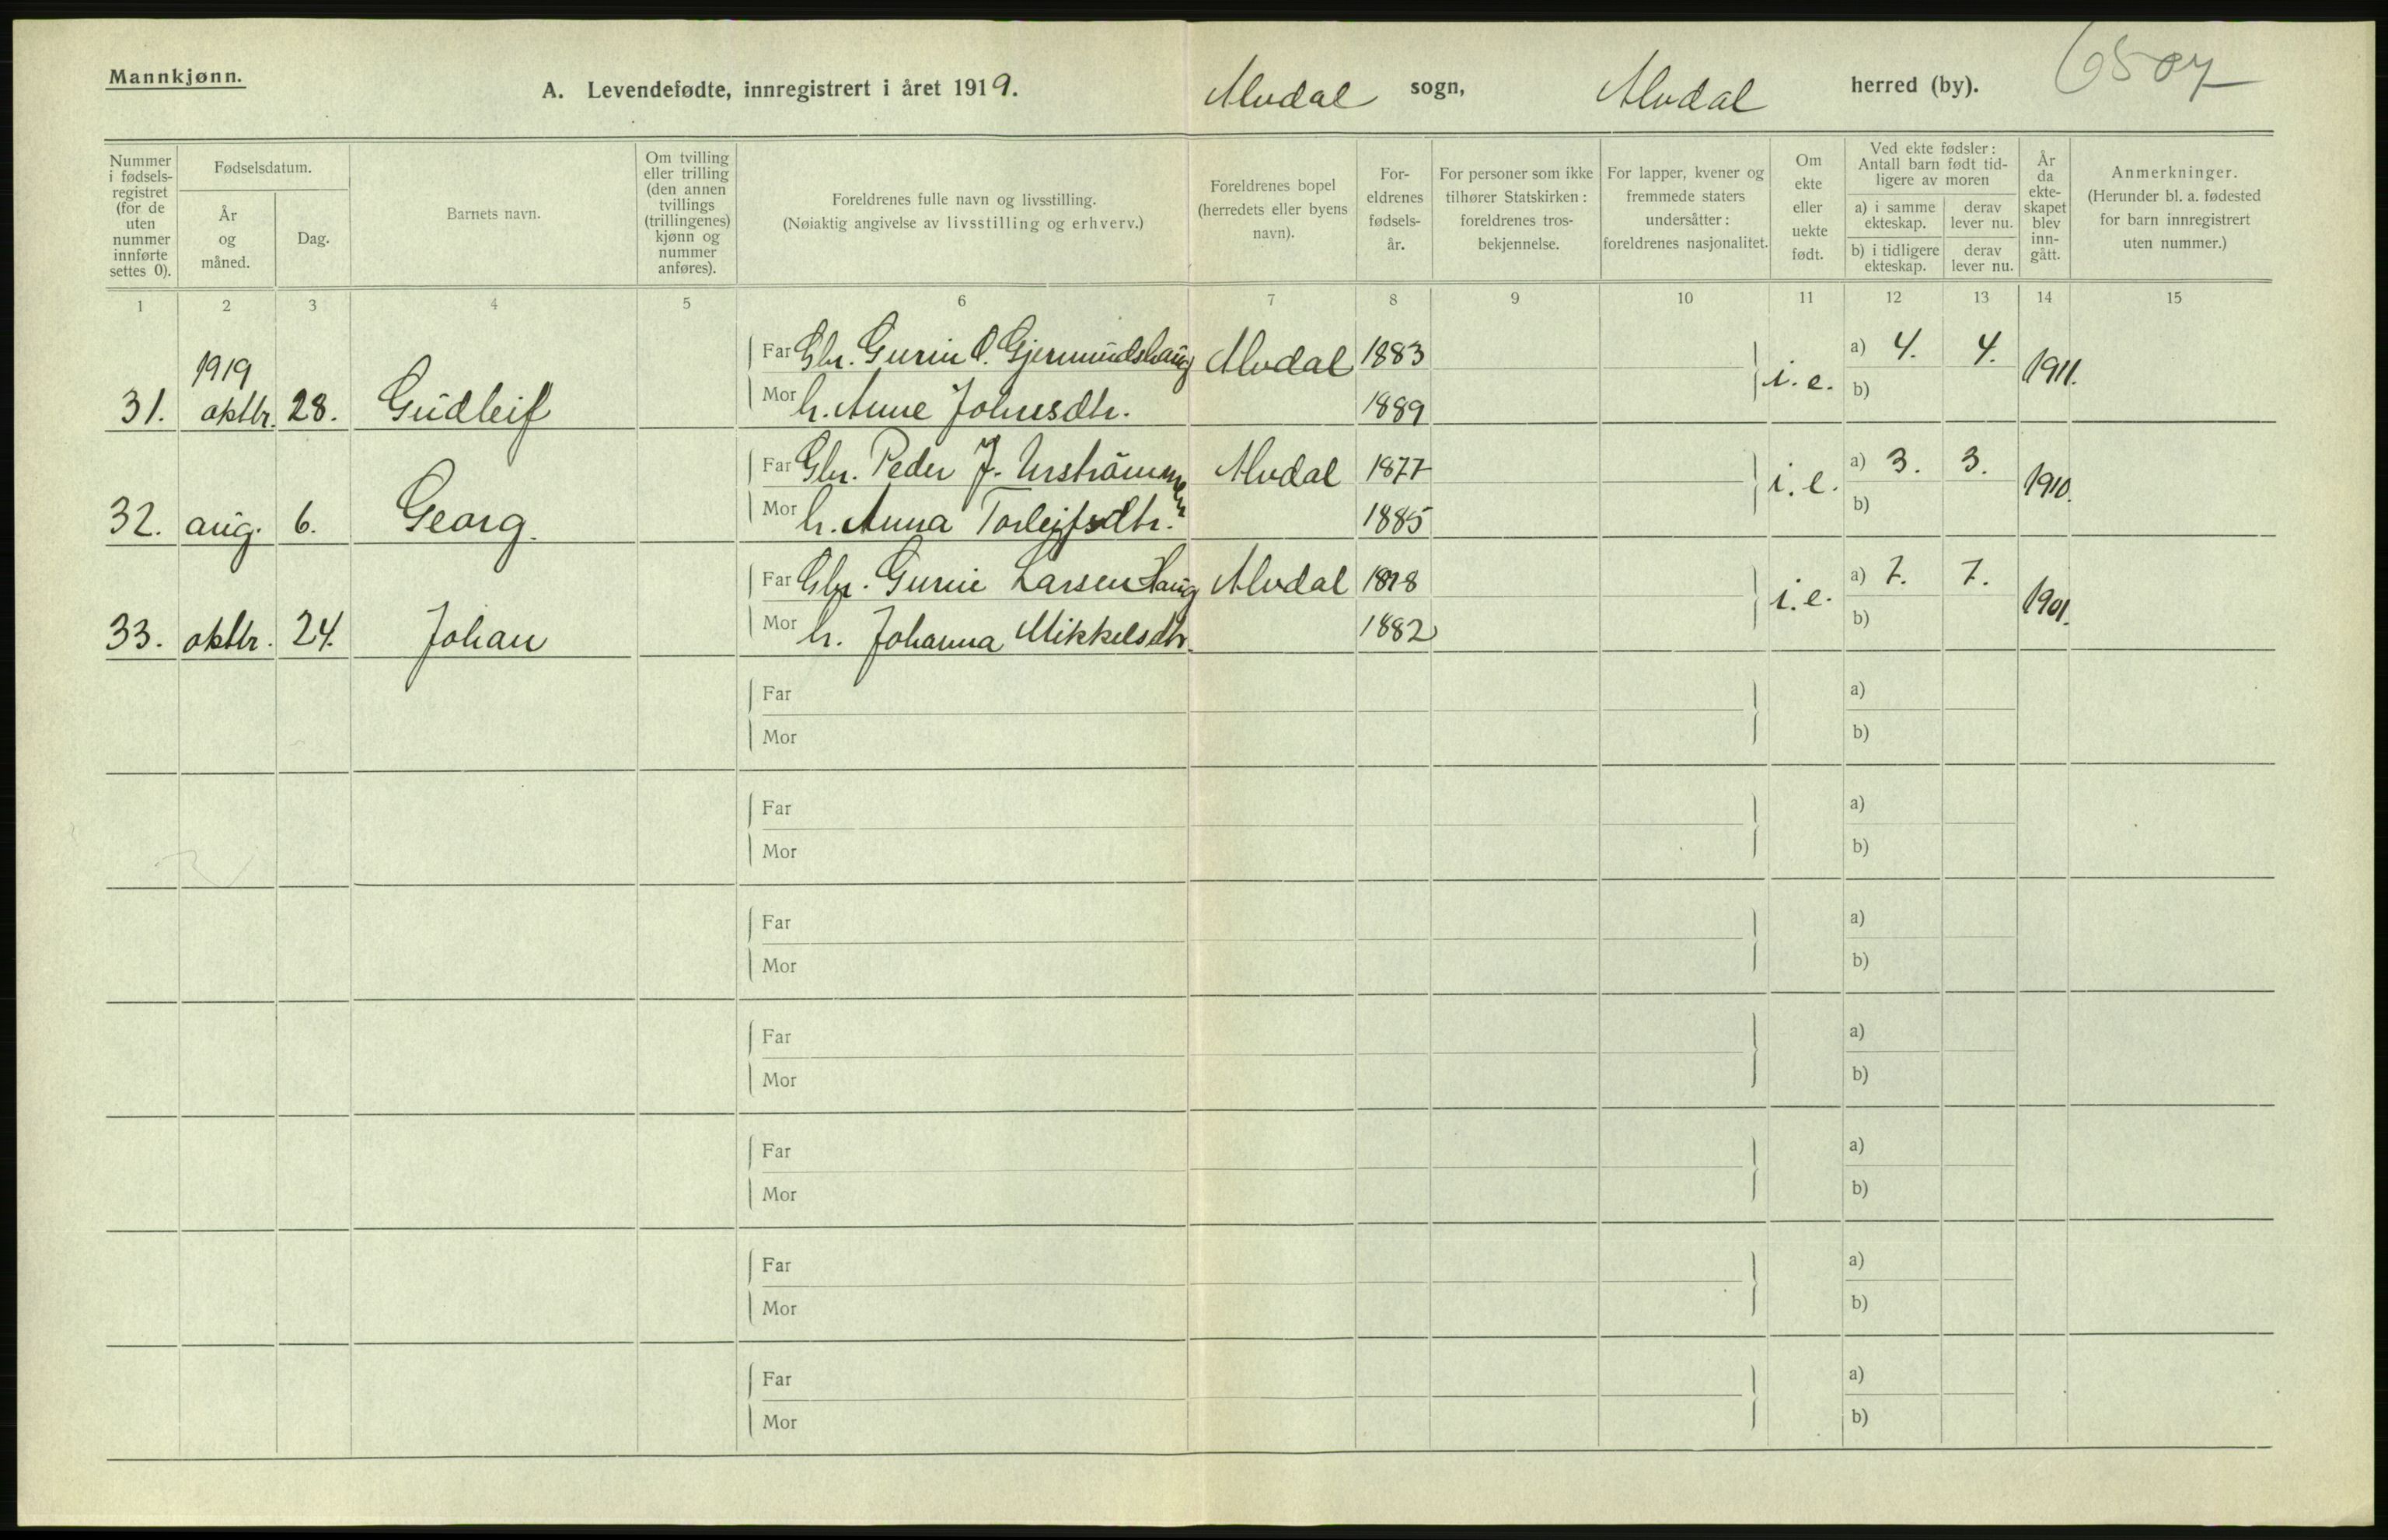 Mannkjønn.
A. Levendefødte, innregistrert i året 1919. Alvdal sogn, Alvdal herred (by).
6507
Nummer i fødsels-registret (for de uten nummer innførte settes 0).
Fødselsdatum.
År og måned.
Dag.
Barnets navn.
Om tvilling eller trilling (den annen tvillings (trillingenes) kjønn og nummer anføres).
Foreldrenes fulle navn og livsstilling.
(Nøiaktig angivelse av livsstilling og erhverv.)
Foreldrenes bopel (herredets eller byens navn).
For-eldrenes fødsels-år.
For personer som ikke tilhører Statskirken: foreldrenes tros-bekjennelse.
For lapper, kvener og fremmede staters undersåtter: foreldrenes nasjonalitet.
Om ekte eller uekte født.
Ved ekte fødsler: Antall barn født tid-ligere av moren
a) i samme ekteskap.
derav lever nu.
b) i tidligere ekteskap.
derav lever nu.
År da ekte-skapet blev inn-gått.
Anmerkninger.
(Herunder bl. a. fødested for barn innregistrert uten nummer.)
1 2 3 4 5 6 7 8 9 10 11 12 13 14 15
1919
Far Gbr. Gunnar O. Gjermundshaug Alvdal 1883 a) 4. 4.
31. oktbr. 28. Gudleif Mor h. Anne Johnsdtr. 1889 i. e. b) 1911.
Far Gbr. Peder J. Urstrømmen Alvdal 1877 a) 3. 3.
32. aug. 6. Georg. Mor h. Anna Torleifsdtr. 1885 i. e. b) 1910.
Far Gbr. Larsen Haug Alvdal 1878 a) 7. 7.
33. oktbr. 24. Johan Mor h. Johanna Mikkelsdtr. 1882 i. e. b) 1901.
Far a)
Mor b)
Far a)
Mor b)
Far a)
Mor b)
Far a)
Mor b)
Far a)
Mor b)
Far a)
Mor b)
Far a)
Mor b)